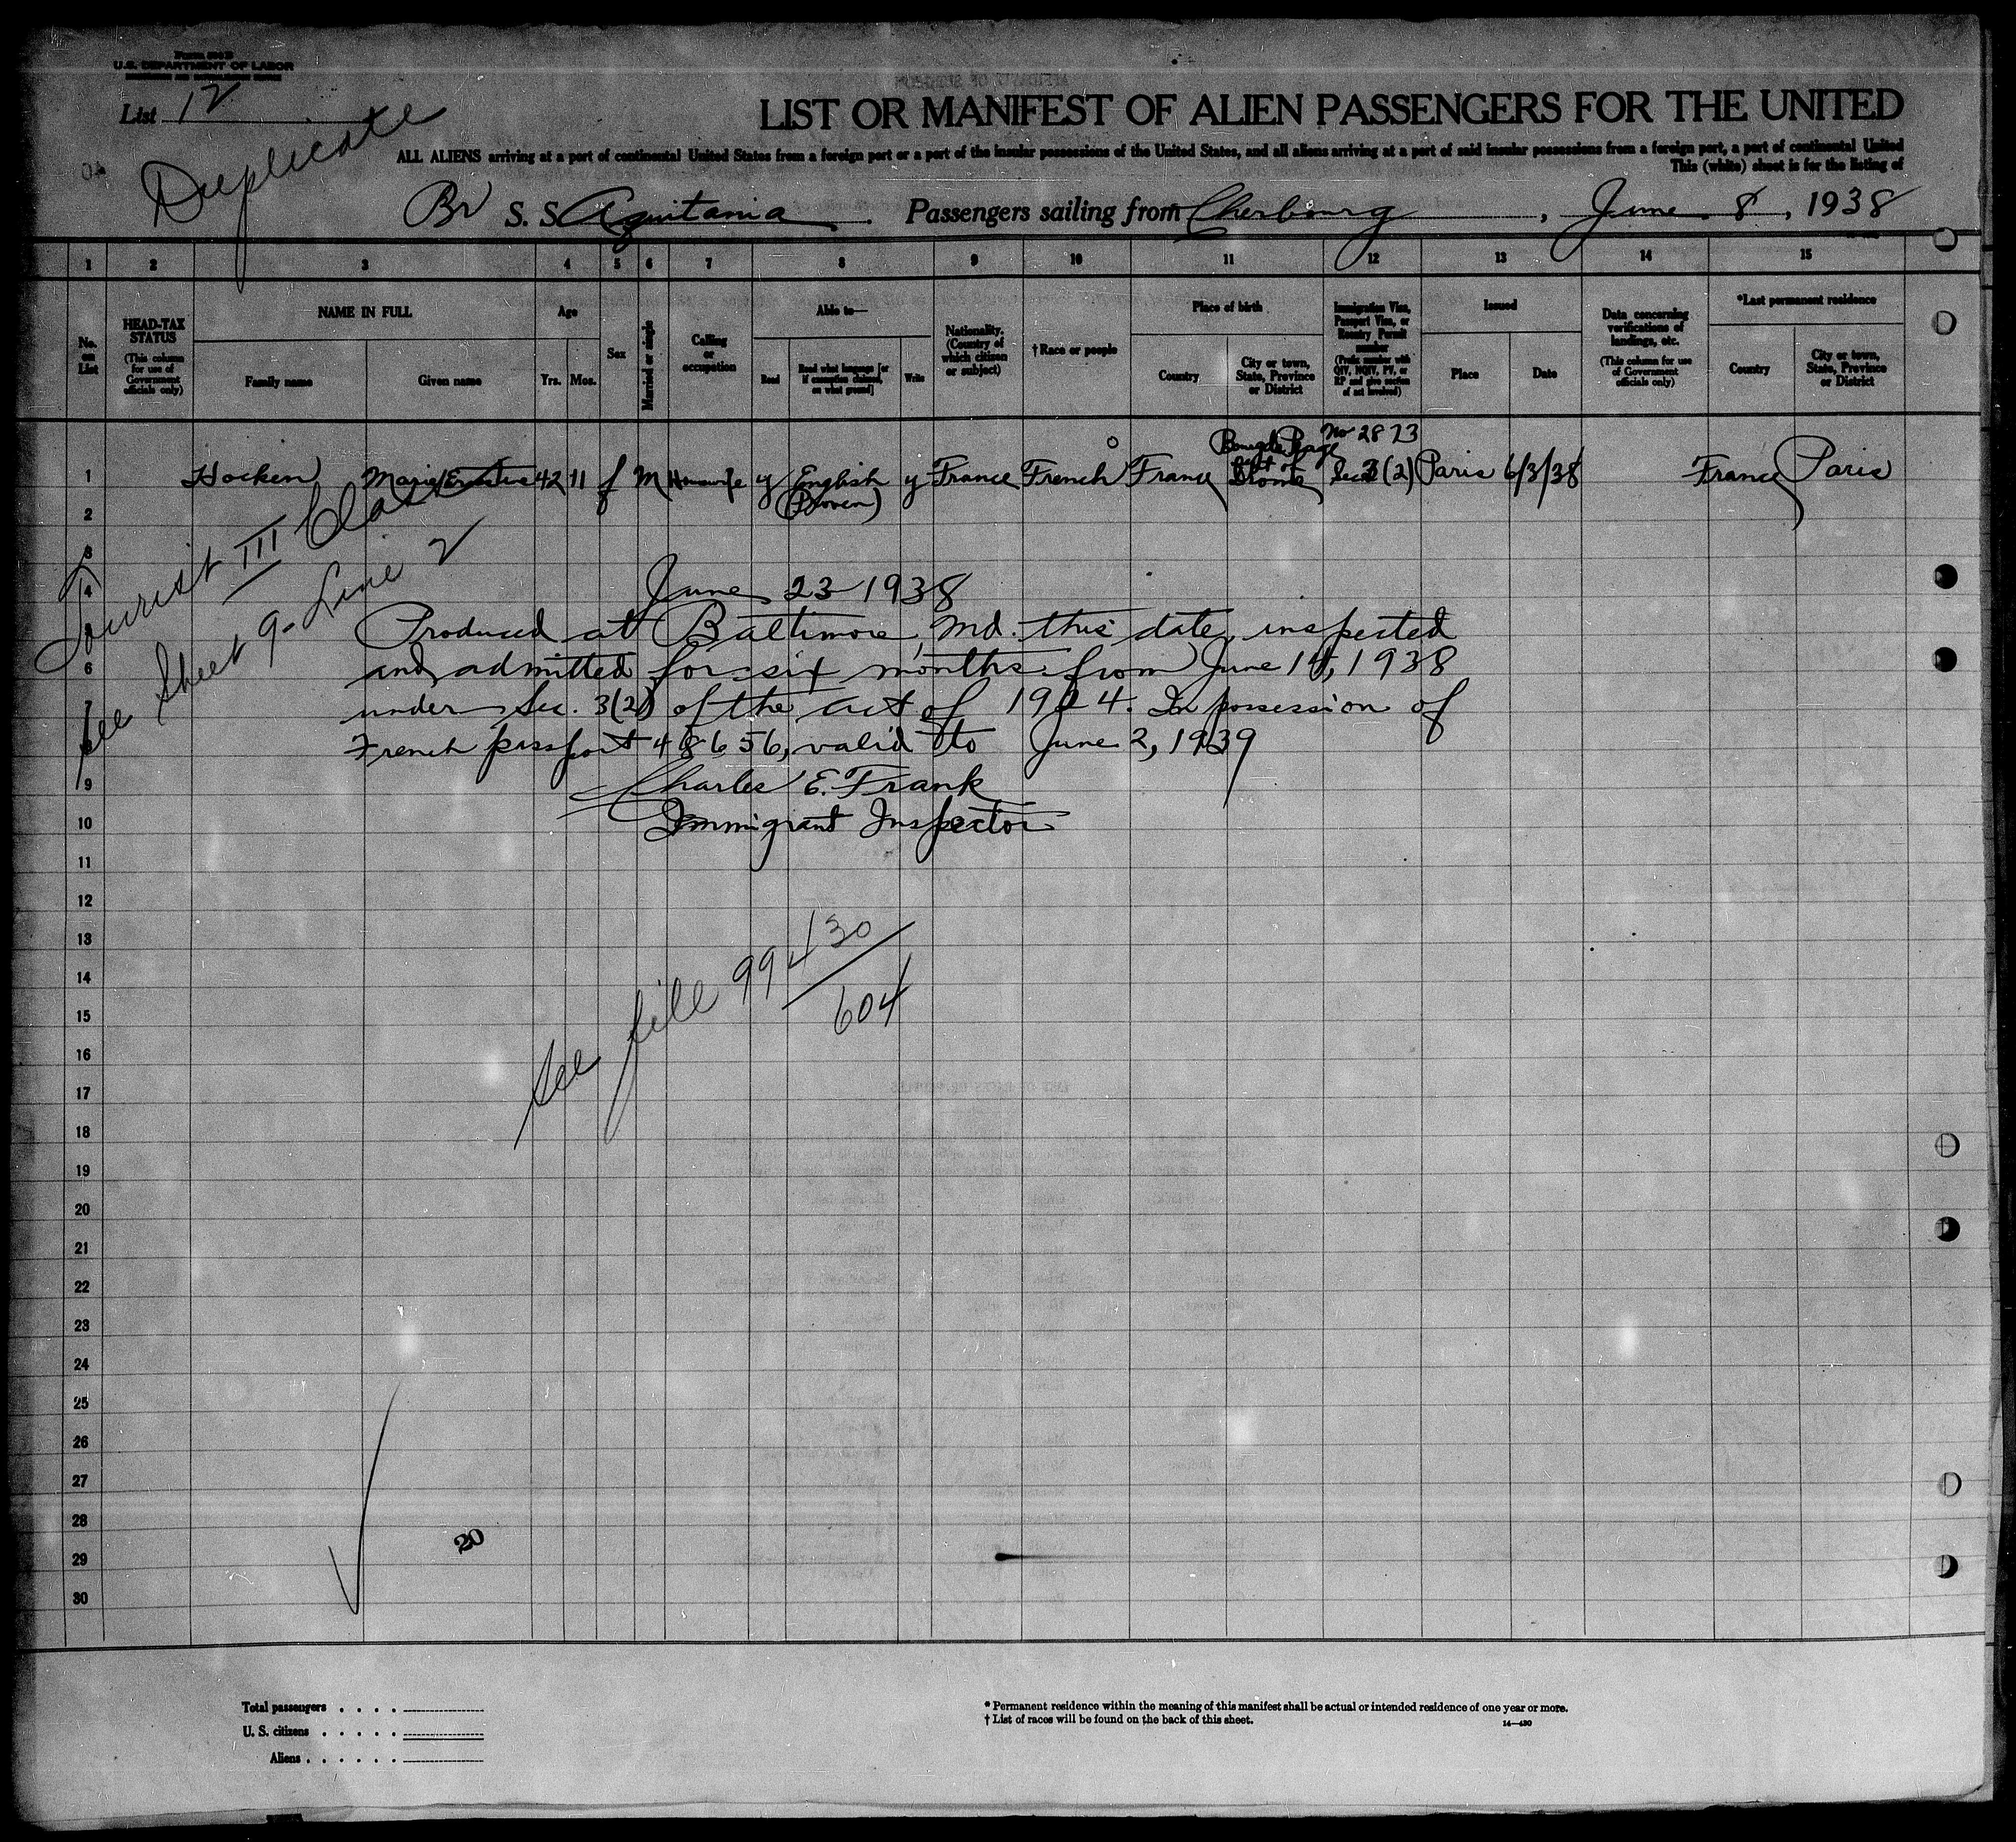 U.S. DEPARTMENT OF LABOR
List 12
Duplicate
LIST OR MANIFEST OF ALIEN PASSENGERS FOR THE UNITED
ALL ALIENS arriving at a port of continental United States from a foreign port or a port of the insular possessions of the United States, and all aliens arriving at a port of said insular possessions from a foreign port, a port of continental United
This (white) sheet is for the listing of
Br S. S. Aquitania Passengers sailing from Cherbourg, June 8, 1938
1 2 3 4 5 6 7 8 9 10 11 12 13 14 15
No. on List
HEAD-TAX STATUS (This column for use of Government officials only)
NAME IN FULL
Family name Given name
Age
Yrs. Mos.
Sex
Married or single
Calling or occupation
Able to—
Read Read what language [or if exemption claimed, on what ground] Write
Nationality. (Country of which citizen or subject)
†Race or people
Place of birth
Country City or town, State, Province or District
Immigration Visa, Passport Visa, or Reentry Permit number (Prefix number with QIV, NQIV, PV, or RP and give section of act involved)
Issued
Place Date
Data concerning verifications of landings, etc. (This column for use of Government officials only)
*Last permanent residence
Country City or town, State, Province or District
No 2873
1 Hocken Marie 42 11 f M Housewife y English y France French France Drome Sec 3 (2) Paris 6/3/38 France Paris
(Proven)
2
3
4
5
6
7
8
9
10
11
12
13
14
15
16
17
18
19
20
21
22
23
24
25
26
27
28
29
30
Tourist III Class
See Sheet 9- Line 2
June 23 1938
Produced at Baltimore, Md. this date, inspected
and admitted for six months from June 14, 1938
under Sec. 3(2) of the act of 1924. In possession of
French passport 48656, valid to June 2, 1939
Charles E. Frank
Immigrant Inspector
See file 99430/604
20
Total passengers
U. S. citizens
Aliens
* Permanent residence within the meaning of this manifest shall be actual or intended residence of one year or more.
† List of races will be found on the back of this sheet.
14—430